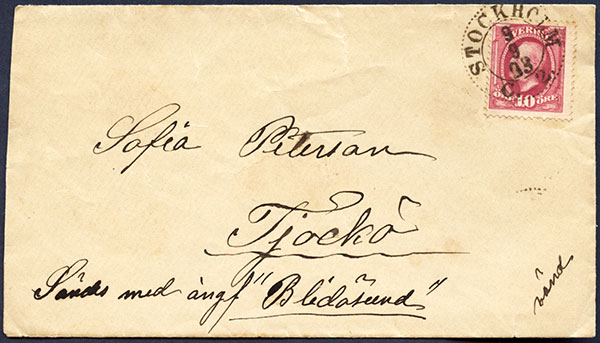 STOCKHOLM
9
9
03
SVERIGE
10 ÖRE
Sofia Peterson
Tjockö
Sändes med ångf "Blidösund"
vänd